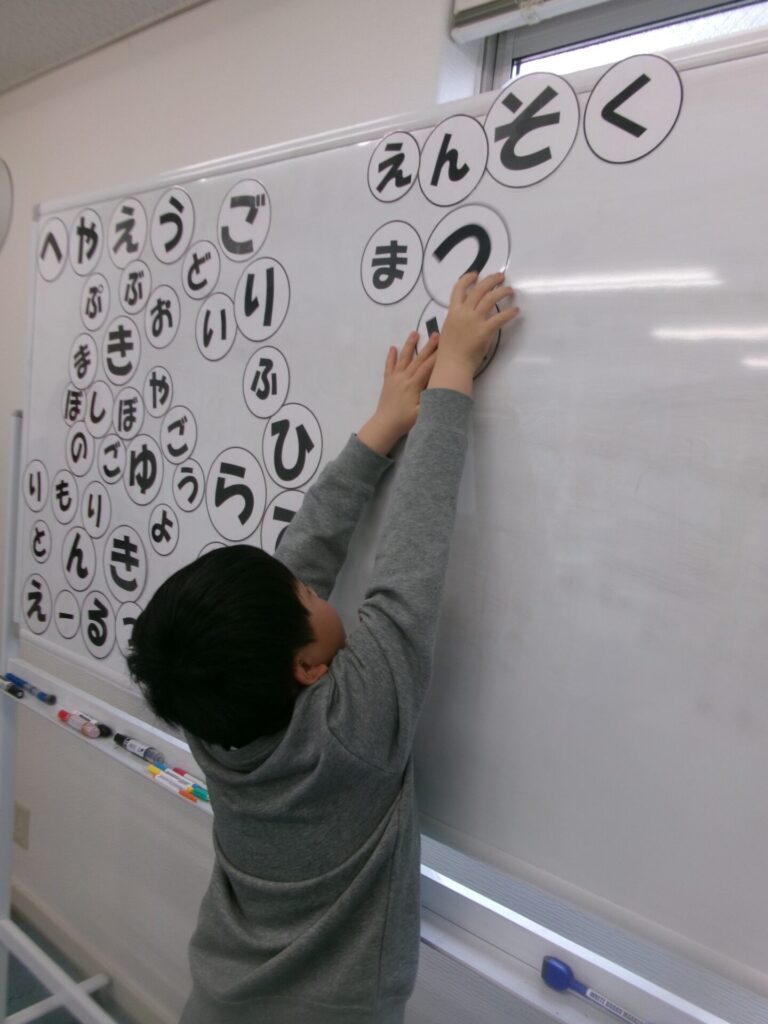 えんそく
まつ
へやえうご
ぷぶおどり
まきい
ぼしぼやふ
のごゆごひ
りもりうら
とんきょ
えーる
WHITE BOARD MARKER